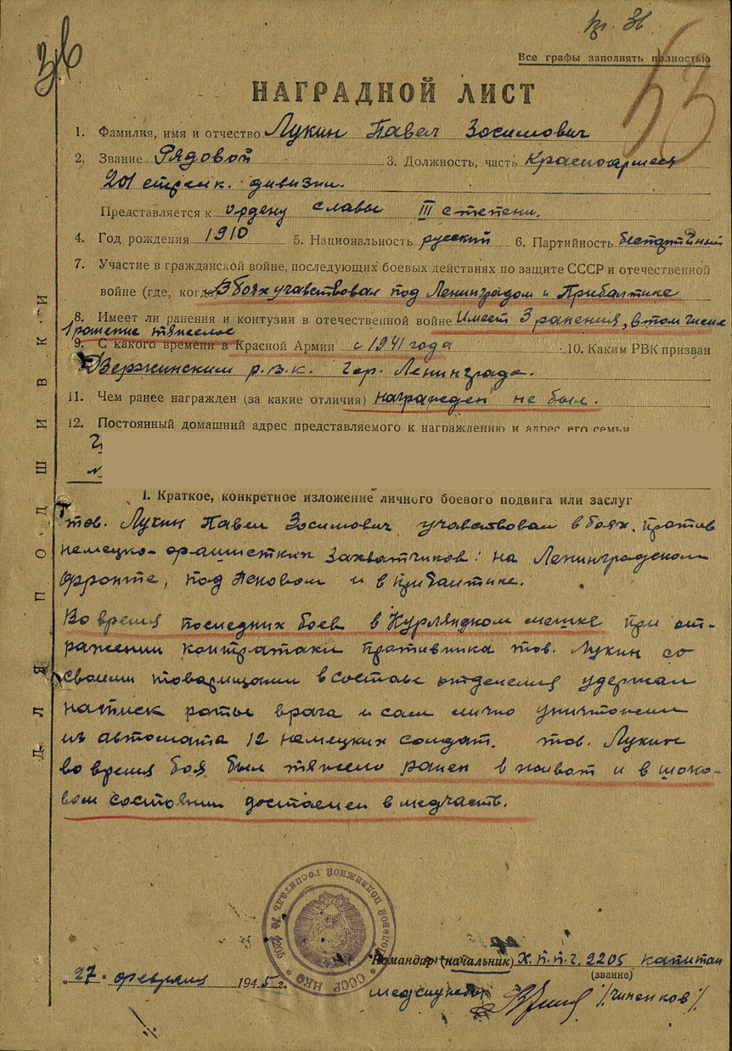 Все графы заполнять полностью
53
НАГРАДНОЙ ЛИСТ
1. Фамилия, имя и отчество Лукин Павел Зосимович
2. Звание Рядовой 3. Должность, часть Красноармеец
201 стрелк. дивизии.
Представляется к ордену славы III степени.
4. Год рождения 1910 5. Национальность русский 6. Партийность беспартийный
7. Участие в гражданской войне, последующих боевых действиях по защите СССР и отечественной
войне (где, когда) В боях учавствовал под Ленинградом и Прибалтике
8. Имеет ли ранения и контузии в отечественной войне Имеет 3 ранения, в том числе
1 ранение тяжелое
9. С какого времени в Красной Армии с 1941 года 10. Каким РВК призван
Дзержинским р.в.к. гор. Ленинграда.
11. Чем ранее награжден (за какие отличия) награжден не был.
12. Постоянный домашний адрес представляемого к награждению и адрес его семьи
I. Краткое, конкретное изложение личного боевого подвига или заслуг
тов. Лукин Павел Зосимович учавствовал в боях против
немецко-фашистких захватчиков: на Ленинградском
фронте, под Псковом и в прибалтике.
Во время последних боев в Курляндком мешке при от-
ражении контратаки противника тов. Лукин со
своими товарищами в составе отделения удержал
натиск роты врага и сам лично уничтожил
из автомата 12 немецких солдат. тов. Лукин
во время боя был тяжело ранен в живот и в шоко-
вом состоянии доставлен в медчасть.
ДЛЯ ПОДШИВКИ
Командир (начальник) Х.П.П.Г. 2205 капитан
(звание)
27 февраля 1945 г.
медслужбы
СССР НКО